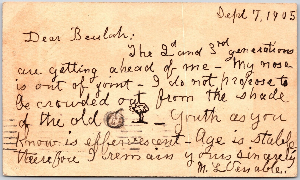 Sept 7, 1905
Dear Beulah:
The 2d and 3rd generations
are getting ahead of me - My nose
is out of joint - I do not propose to
be crowded out from the shade
of the old - Youth as you
know is effervescent - Age is stable
therefore I remain yours singrely
M. L. Venable.